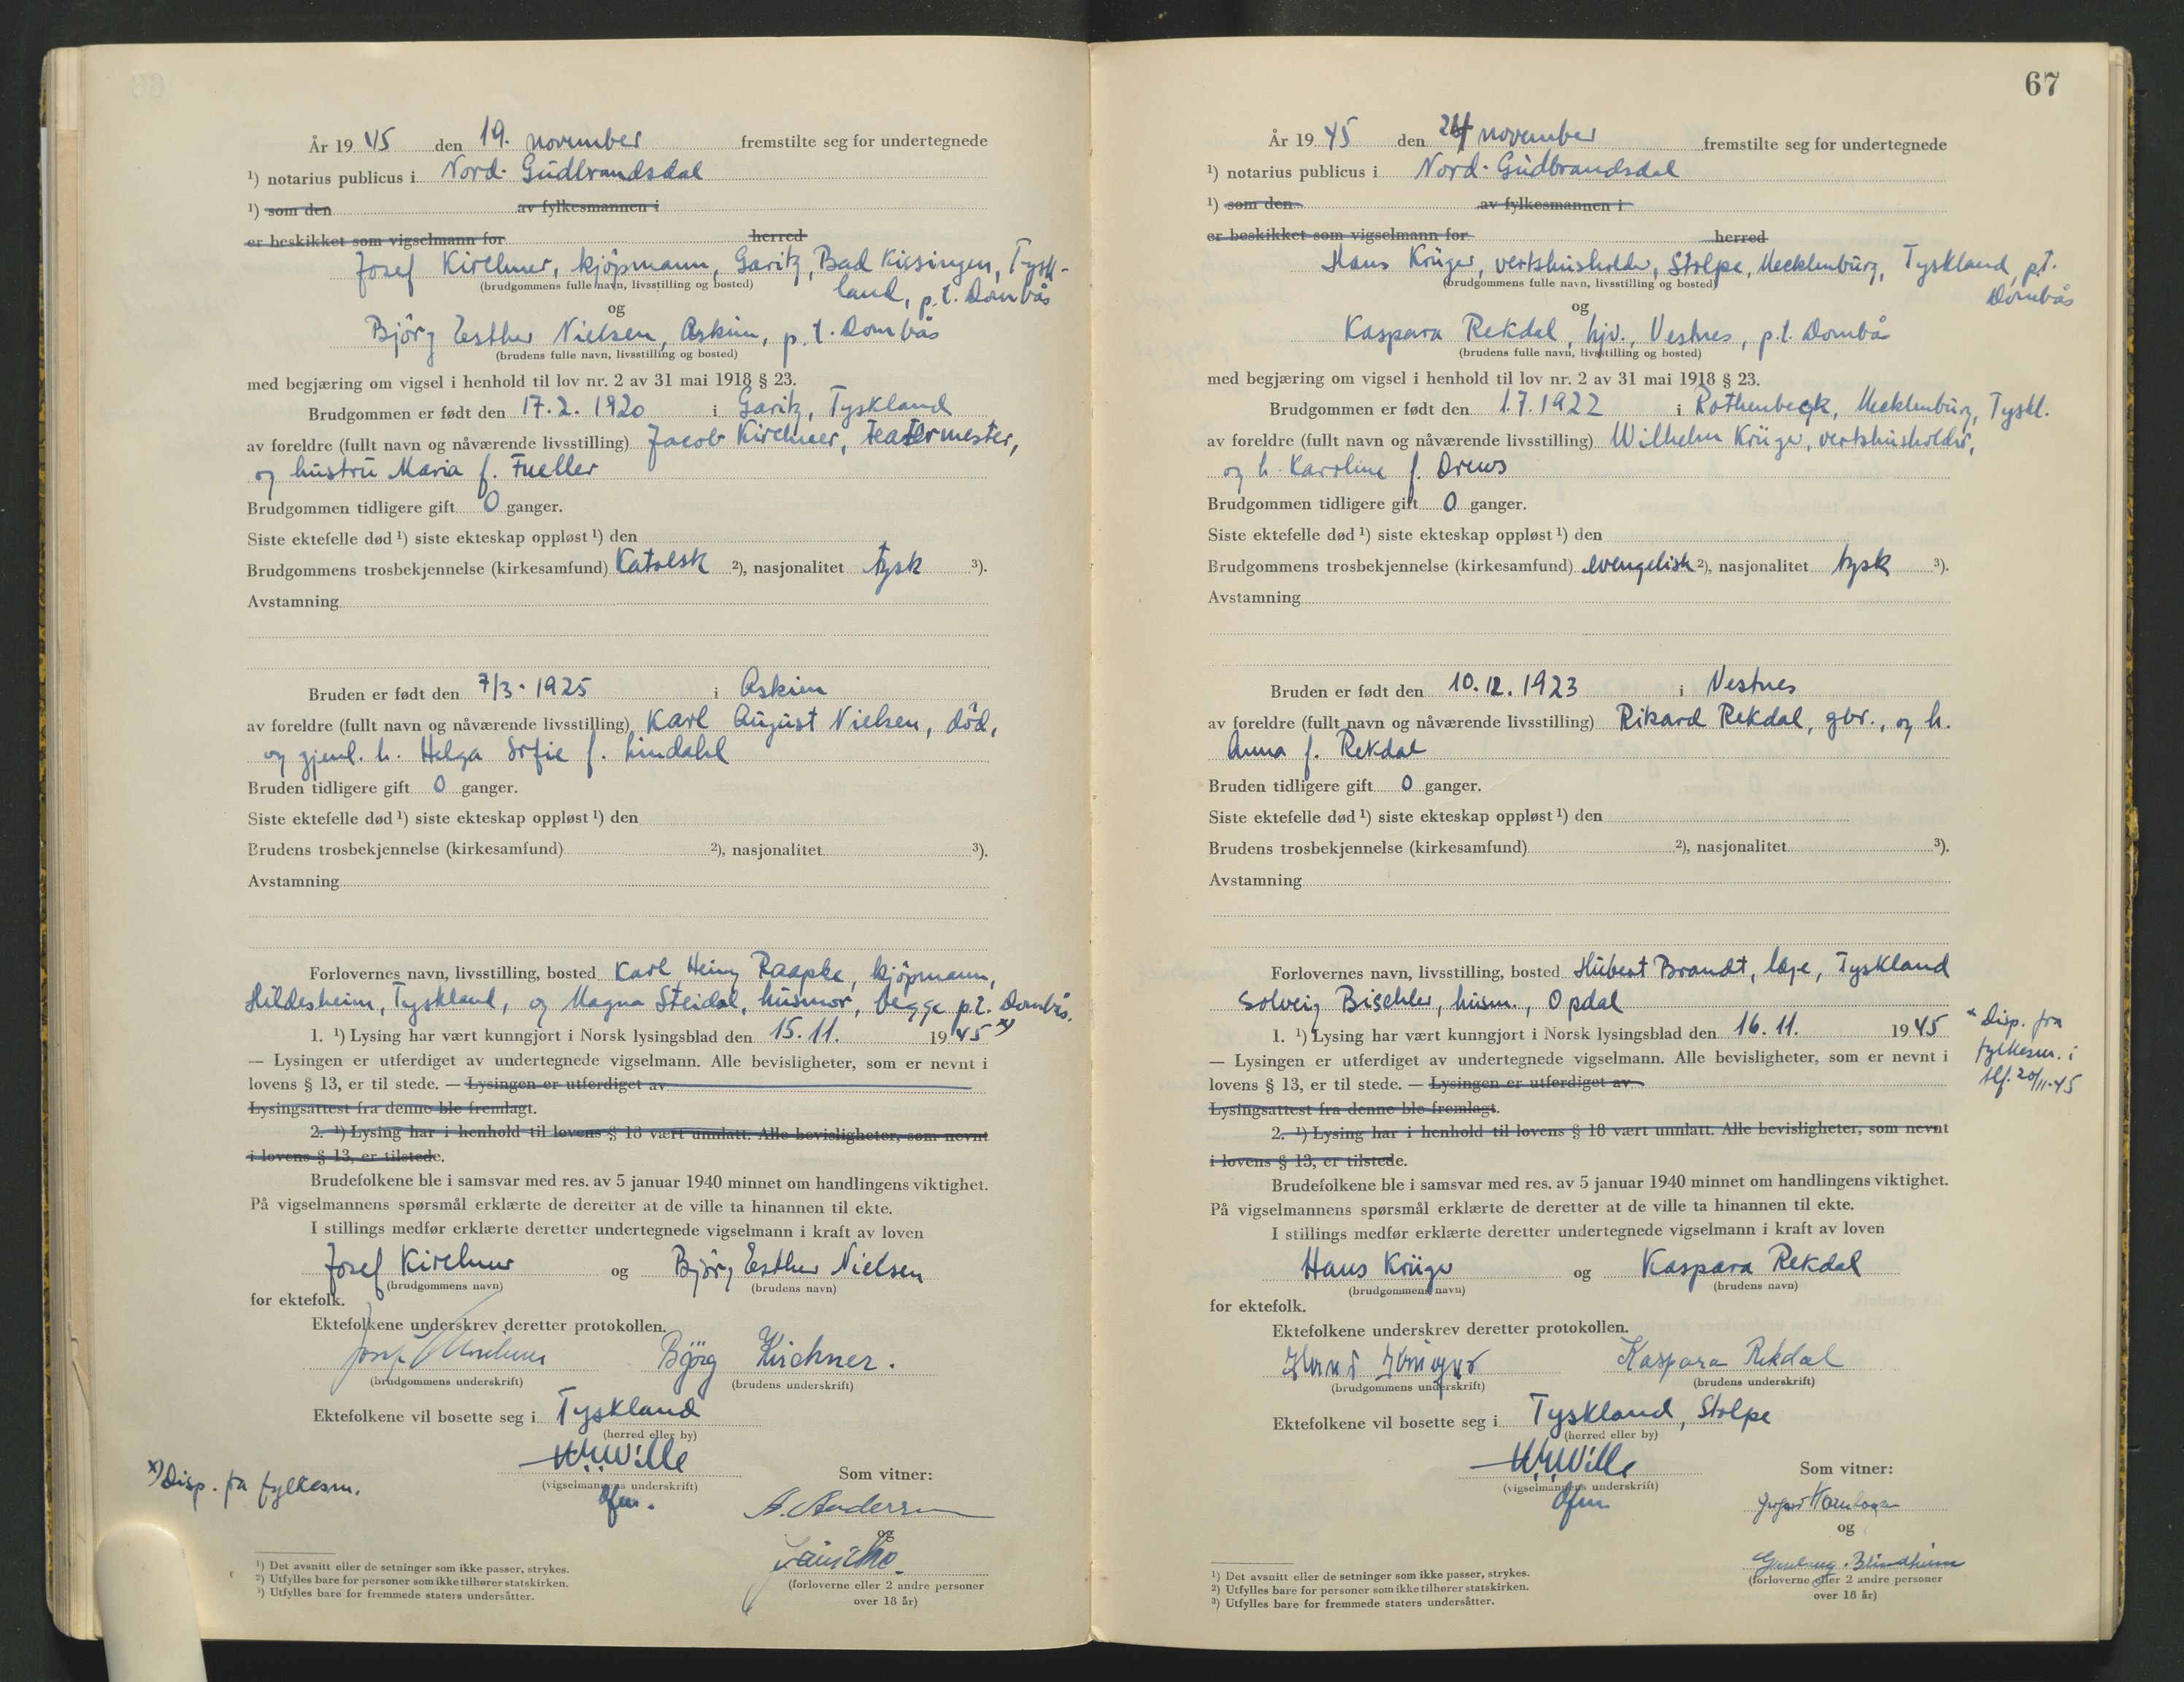 År 1945 den 19. november fremstilte seg for undertegnede
¹) notarius publicus i Nord-Gudbrandsdal
¹) som den av fylkesmannen i
er beskikket som vigselmann for herred
Josef Kirchner, kjöpmann, Garitz, Bad Kissingen, Tysk-
land, p.t. Dombås
(brudgommens fulle navn, livsstilling og bosted)
og
Björg Esther Nielsen, Askim, p.t. Dombås
(brudens fulle navn, livsstilling og bosted)
med begjæring om vigsel i henhold til lov nr. 2 av 31 mai 1918 § 23.
Brudgommen er født den 17.2.1920 i Garitz, Tyskland
av foreldre (fullt navn og nåværende livsstilling) Jacob Kirchner, teatermester,
og hustru Maria f. Fueller
Brudgommen tidligere gift 0 ganger.
Siste ektefelle død ¹) siste ekteskap oppløst ¹) den
Brudgommens trosbekjennelse (kirkesamfund) Katolsk ²), nasjonalitet tysk ³).
Avstamning
Bruden er født den 7/3-1925 i Askim
av foreldre (fullt navn og nåværende livsstilling) Karl August Nielsen, död,
og gjenl. h. Helga Sofie f. Lindahl
Bruden tidligere gift 0 ganger.
Siste ektefelle død ¹) siste ekteskap oppløst ¹) den
Brudens trosbekjennelse (kirkesamfund) ²), nasjonalitet ³).
Avstamning
Forlovernes navn, livsstilling, bosted Karl Heinz Raapke, kjöpmann,
Hildesheim, Tyskland, og Magna Steidal, husmor, begge p.t. Dombås.
1. ¹) Lysing har vært kunngjort i Norsk lysingsblad den 15.11. 1945 x)
— Lysingen er utferdiget av undertegnede vigselmann. Alle bevisligheter, som er nevnt i
lovens § 13, er til stede. — Lysingen er utferdiget av
Lysingsattest fra denne ble fremlagt.
2. ¹) Lysing har i henhold til lovens § 18 vært unnlatt. Alle bevisligheter, som nevnt
i lovens § 13, er tilstede.
Brudefolkene ble i samsvar med res. av 5 januar 1940 minnet om handlingens viktighet.
På vigselmannens spørsmål erklærte de deretter at de ville ta hinannen til ekte.
I stillings medfør erklærte deretter undertegnede vigselmann i kraft av loven
Josef Kirchner og Björg Esther Nielsen
(brudgommens navn) (brudens navn)
for ektefolk.
Ektefolkene underskrev deretter protokollen.
Josef Kirchner Björg Kirchner.
(brudgommens underskrift) (brudens underskrift)
Ektefolkene vil bosette seg i Tyskland
(herred eller by)
Wille
(vigselmannens underskrift) Som vitner:
x) Disp. fra fylkesm.
A. Andersen
og
(forloverne eller 2 andre personer
over 18 år)
¹) Det avsnitt eller de setninger som ikke passer, strykes.
²) Utfylles bare for personer som ikke tilhører statskirken.
³) Utfylles bare for fremmede staters undersåtter.
67
År 1945 den 24 november fremstilte seg for undertegnede
¹) notarius publicus i Nord-Gudbrandsdal
¹) som den av fylkesmannen i
er beskikket som vigselmann for herred
Hans Krüger, vertshusholder, Stolpe, Mecklenburg, Tyskland, p.t.
Dombås
(brudgommens fulle navn, livsstilling og bosted)
og
Kaspara Rekdal, hjv., Vestnes, p.t. Dombås
(brudens fulle navn, livsstilling og bosted)
med begjæring om vigsel i henhold til lov nr. 2 av 31 mai 1918 § 23.
Brudgommen er født den 1.7.1922 i Rothenbegk, Mecklenburg, Tyskl.
av foreldre (fullt navn og nåværende livsstilling) Wilhelm Krüger, vertshusholder,
og h. Karoline f. Drews
Brudgommen tidligere gift 0 ganger.
Siste ektefelle død ¹) siste ekteskap oppløst ¹) den
Brudgommens trosbekjennelse (kirkesamfund) evangelisk ²), nasjonalitet tysk ³).
Avstamning
Bruden er født den 10.12.1923 i Vestnes
av foreldre (fullt navn og nåværende livsstilling) Rikard Rekdal, gbr., og h.
Anna f. Rekdal
Bruden tidligere gift 0 ganger.
Siste ektefelle død ¹) siste ekteskap oppløst ¹) den
Brudens trosbekjennelse (kirkesamfund) ²), nasjonalitet ³).
Avstamning
Forlovernes navn, livsstilling, bosted Hubert Brandt, læge, Tyskland
Solveig Bischler, husm., Opdal
1. ¹) Lysing har vært kunngjort i Norsk lysingsblad den 16.11. 1945
x Disp. fra
fylkesm. i
tlf. 20/11-45
— Lysingen er utferdiget av undertegnede vigselmann. Alle bevisligheter, som er nevnt i
lovens § 13, er til stede. — Lysingen er utferdiget av
Lysingsattest fra denne ble fremlagt.
2. ¹) Lysing har i henhold til lovens § 18 vært unnlatt. Alle bevisligheter, som nevnt
i lovens § 13, er tilstede.
Brudefolkene ble i samsvar med res. av 5 januar 1940 minnet om handlingens viktighet.
På vigselmannens spørsmål erklærte de deretter at de ville ta hinannen til ekte.
I stillings medfør erklærte deretter undertegnede vigselmann i kraft av loven
Hans Krüger og Kaspara Rekdal
(brudgommens navn) (brudens navn)
for ektefolk.
Ektefolkene underskrev deretter protokollen.
Hans Krüger Kaspara Rekdal
(brudgommens underskrift) (brudens underskrift)
Ektefolkene vil bosette seg i Tyskland, Stolpe
(herred eller by)
Wille
(vigselmannens underskrift) Som vitner:
og
Gunlaug Blindheim
(forloverne eller 2 andre personer
over 18 år)
¹) Det avsnitt eller de setninger som ikke passer, strykes.
²) Utfylles bare for personer som ikke tilhører statskirken.
³) Utfylles bare for fremmede staters undersåtter.